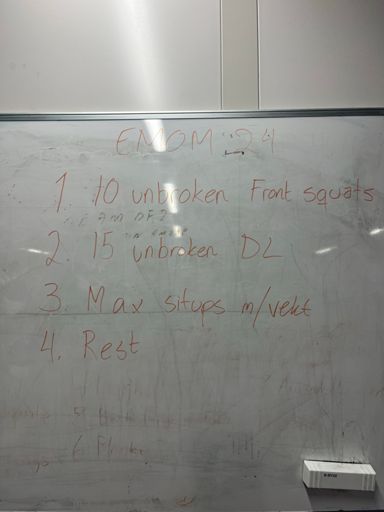 EMOM :24
1. 10 unbroken Front squats
2. 15 unbroken DL
3. Max situps m/vekt
4. Rest